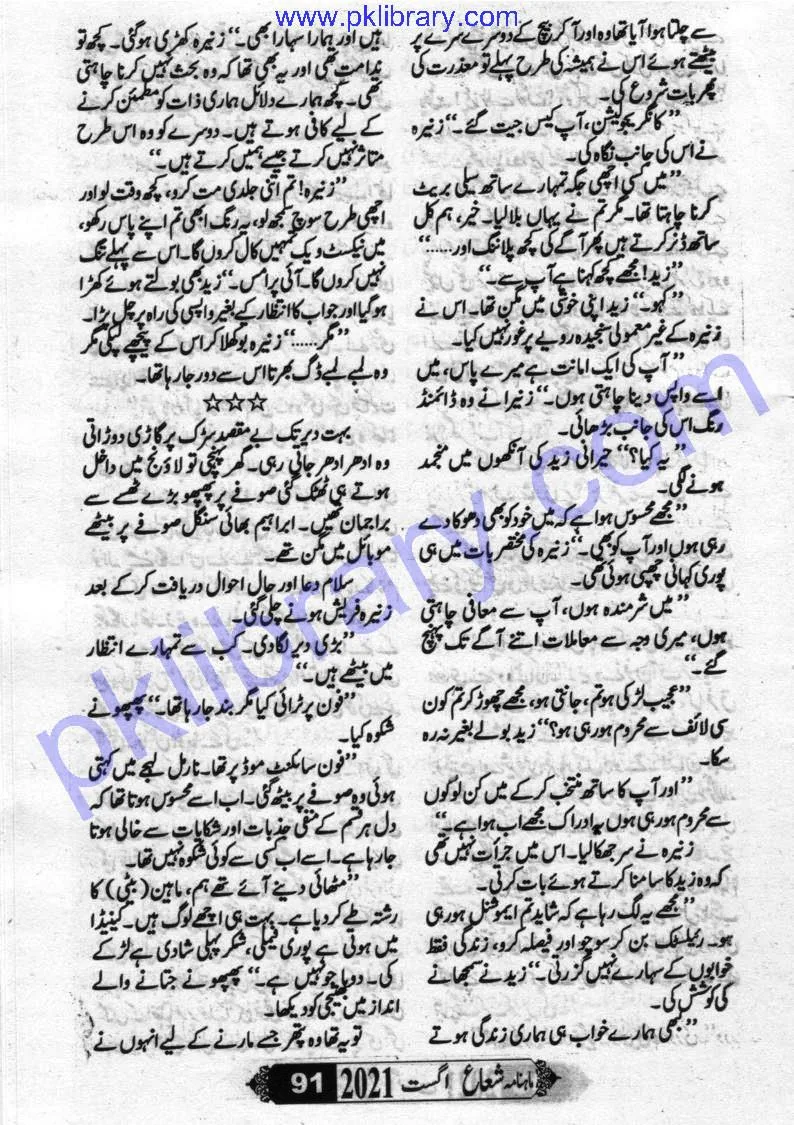 www.pklibrary.com
سے چلتا ہوا آیا تھا وہ اور آ کر بینچ کے دوسرے سرے پر
بیٹھتے ہوئے اس نے ہمیشہ کی طرح پہلے تو معذرت کی
پھر بات شروع کی۔
”کانگریجولیشن، آپ کیس جیت گئے۔“ زنیرہ
نے اس کی جانب نگاہ کی۔
”میں کسی اچھی جگہ تمہارے ساتھ سیلی بریٹ
کرنا چاہتا تھا۔ مگر تم نے یہاں بلا لیا۔ خیر، ہم کل
ساتھ ڈنر کرتے ہیں پھر آگے کی کچھ پلاننگ اور......“
”زید! مجھے کچھ کہنا ہے آپ سے۔“
”کہو۔“ زید اپنی خوشی میں مگن تھا۔ اس نے
زنیرہ کے غیر معمولی سنجیدہ رویے پر غور نہیں کیا۔
”آپ کی ایک امانت ہے میرے پاس، میں
اسے واپس دینا چاہتی ہوں۔“ زنیرا نے وہ ڈائمنڈ
رنگ اس کی جانب بڑھائی۔
”یہ کیا؟“ حیرانی زید کی آنکھوں میں منجمد
ہونے لگی۔
”مجھے محسوس ہوا ہے کہ میں خود کو بھی دھوکا دے
رہی ہوں اور آپ کو بھی۔“ زنیرہ کی مختصر بات میں ہی
پوری کہانی چھپی ہوئی تھی۔
”میں شرمندہ ہوں، آپ سے معافی چاہتی
ہوں، میری وجہ سے معاملات اتنے آگے تک پہنچ
گئے۔“
”عجیب لڑکی ہو تم، جانتی ہو، مجھے چھوڑ کر تم کون
سی لائف سے محروم ہو رہی ہو؟“ زید بولے بغیر نہ رہ
سکا۔
”اور آپ کا ساتھ منتخب کر کے میں کن لوگوں
سے محروم ہو رہی ہوں یہ ادراک مجھے اب ہوا ہے۔“
زنیرہ نے سر جھکا لیا۔ اس میں جرأت نہیں تھی
کہ وہ زید کا سامنا کرتے ہوئے بات کرتی۔
”مجھے یہ لگ رہا ہے کہ شاید تم ایموشنل ہو رہی
ہو۔ ریلسٹک بن کر سوچو اور فیصلہ کرو، زندگی فقط
خوابوں کے سہارے نہیں گزرتی۔“ زید نے سمجھانے
کی کوشش کی۔
”کبھی ہمارے خواب ہی ہماری زندگی ہوتے
ہیں اور ہمارا سہارا بھی۔“ زنیرہ کھڑی ہو گئی۔ کچھ تو
ندامت تھی اور یہ بھی تھا کہ وہ بحث نہیں کرنا چاہتی
تھی۔ کچھ ہمارے دلائل ہماری ذات کو مطمئن کرنے
کے لیے کافی ہوتے ہیں۔ دوسرے کو وہ اس طرح
متاثر نہیں کرتے جیسے ہمیں کرتے ہیں۔“
”زنیرہ! تم اتنی جلدی مت کرو، کچھ وقت لو اور
اچھی طرح سوچ سمجھ لو، یہ رنگ ابھی تم اپنے پاس رکھو،
میں نیکسٹ ویک تمہیں کال کروں گا۔ اس سے پہلے تنگ
نہیں کروں گا۔ آئی پرامس۔“ زید بھی بولتے ہوئے کھڑا
ہو گیا اور جواب کا انتظار کے بغیر واپسی کی راہ پر چل پڑا۔
”مگر......“ زنیرہ بوکھلا کر اس کے پیچھے لپکی مگر
وہ لمبے لمبے ڈگ بھرتا اس سے دور جا رہا تھا۔
☆☆☆
بہت دیر تک بے مقصد سڑک پر گاڑی دوڑاتی
وہ ادھر ادھر جاتی رہی۔ گھر پہنچی تو لاؤنج میں داخل
ہوتے ہی ٹھٹک گئی صوفے پر پھپھو بڑے ٹھسے سے
براجمان تھیں۔ ابراہیم بھائی سنگل صوفے پر بیٹھے
موبائل میں مگن تھے۔
سلام دعا اور حال احوال دریافت کر کے بعد
زنیرہ فریش ہونے چلی گئی۔
”بڑی دیر لگا دی۔ کب سے تمہارے انتظار
میں بیٹھے ہیں۔“
”فون پر ٹرائی کیا مگر بند جا رہا تھا۔“ پھپھو نے
شکوہ کیا۔
”فون سائلنٹ موڈ پر تھا۔ نارمل لہجے میں کہتی
ہوئی وہ صوفے پر بیٹھ گئی۔ اب اسے محسوس ہوتا تھا کہ
دل ہر قسم کے منفی جذبات اور شکایات سے خالی ہوتا
جا رہا ہے۔ اسے اب کسی سے کوئی شکوہ نہیں تھا۔
”مٹھائی دینے آئے تھے ہم، ماہین (بیٹی) کا
رشتہ طے کر دیا ہے۔ بہت ہی اچھے لوگ ہیں۔ کینیڈا
میں ہوتی ہے پوری فیملی، شکر پہلی شادی ہے لڑکے
کی۔ دوہاجو نہیں ہے۔“ پھپھو نے جتانے والے
انداز میں بھتیجی کو دیکھا۔
تو یہ تھا وہ پتھر جسے مارنے کے لیے انہوں نے
ماہنامہ شعاع اگست 2021 91
pklibrary.com